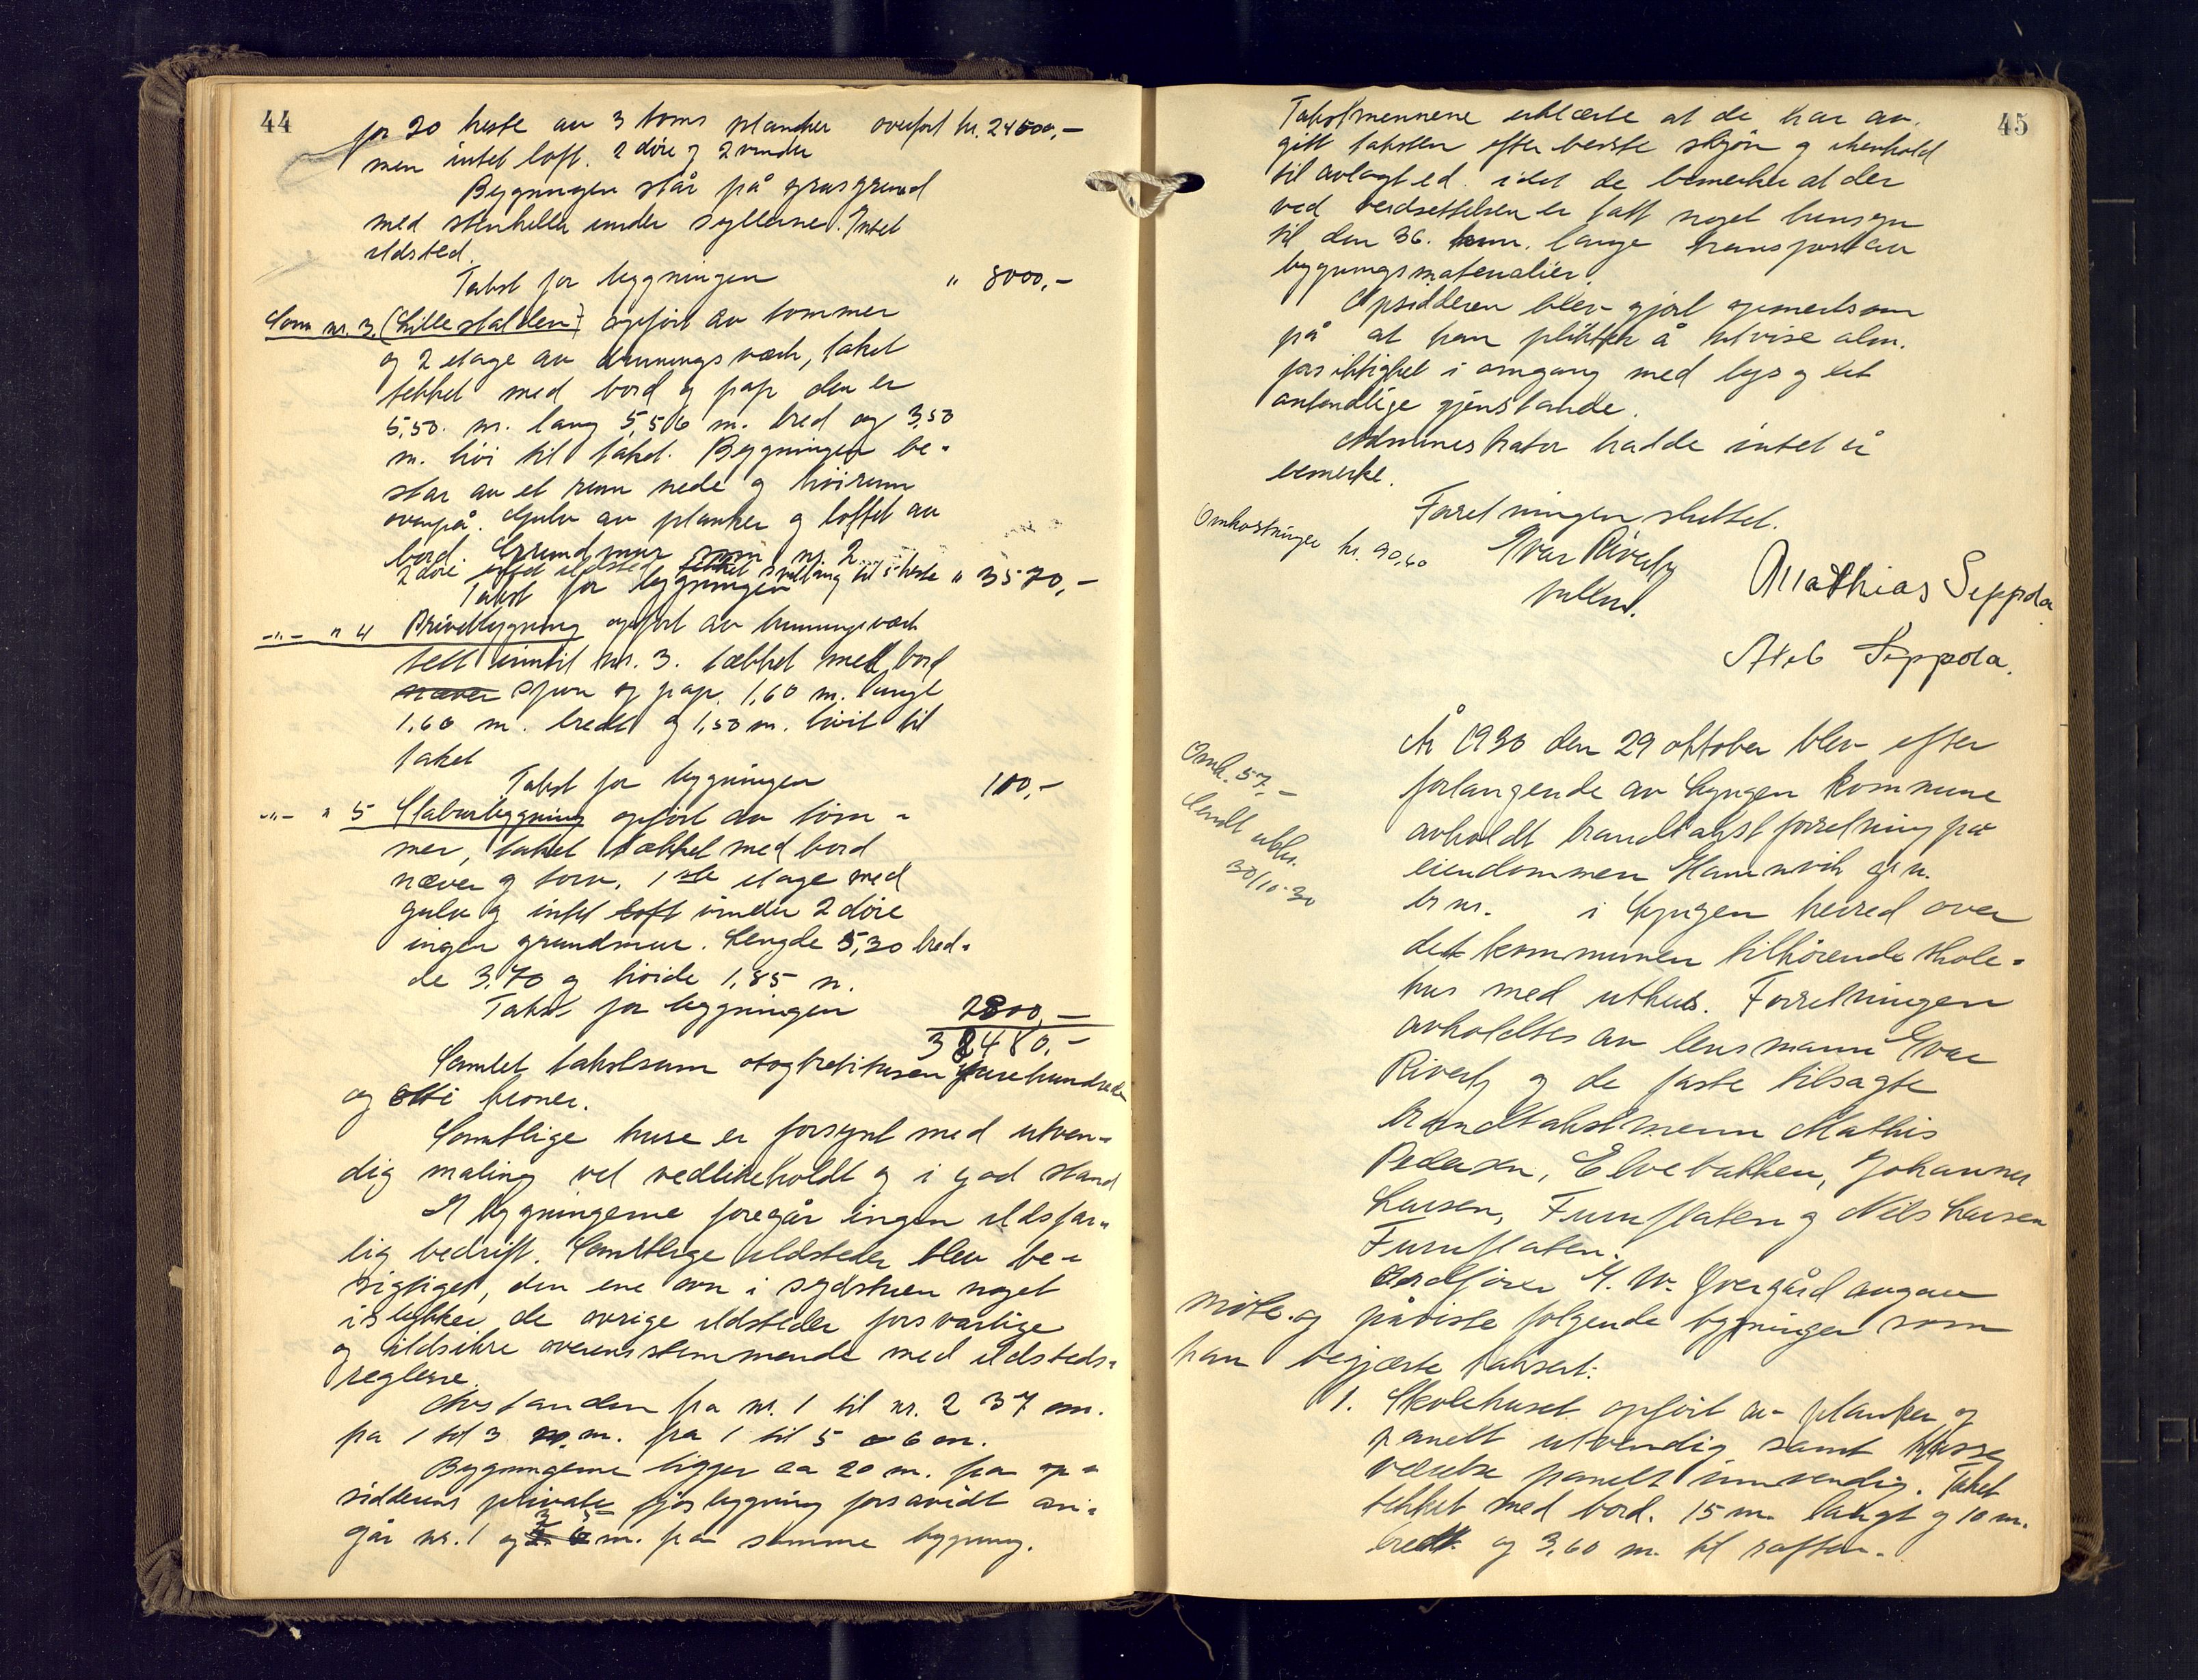 44
for 20 heste av 3 toms planker overført kr. 24500,-
men intet loft. 2 døre og 2 vinduer
Bygningen står på grusgrund
med stenheller under syllerne. Intet
ildsted.
Takst for bygningen " 8000,-
Som nr. 3. (Lillestallen) opført av tømmer
og 2 etage av bindingsverk, taket
tekket med bord og pap den er
5,50 m. lang 5,50 m. bred og 3,50
m. høi til taket. Bygningen be-
står av et rum nede og høirum
ovenpå. Gulv av planker og loftet av
bord. Grundmur som nr. 2
2 døre intet ildsted spilltaug til 5 heste " 3570,-
Takst for bygningen
-"- " 4 Privetbygning opført av bindingsverk
tett inntil nr. 3. tækket med bord
næver spon og pap. 1,60 m. langt
1,60 m. bredt og 1,50 m. høit til
taket
Takst for bygningen 110,-
-"- " 5 Stabursbygning opført av tøm-
mer, taket tækket med bord
næver og torv. 1ste etage med
gulv og intet loft vinduer 2 døre
ingen grundmur. Lengde 5,30 bred-
de 3,70 og høide 1,85 m.
Takst for bygningen 2300,-
38480,-
Samlet takstsum otogtretitusen firehundrede
og otti kroner.
Samtlige huse er forsynt med utven-
dig maling vel vedlikeholdt og i god stand
I bygningerne foregår ingen ildsfar-
lig bedrift. Samtlige ildsteder blev be-
sigtiget, den ene ovn i sydstuen noget
istykker de øvrige ildsteder forsvarlige
og ildsikre overensstemmende med ildsteds-
reglene.
Avstanden fra nr. 1 til nr. 2 37 m.
fra 1 til 3 m. fra 1 til 5 6 m.
Bygningerne ligger ca 20 m. fra op-
sidderens private fjøsbygning forsavidt an-
går nr. 1 og m. fra samme bygning.
45
Takstmennene erklærte at de har av-
gitt taksten efter beste skjøn og i henhold
til avlagt ed. idet de bemerker at der
ved verdsettelsen er tatt noget hensyn
til den 36. km. lange transport av
bygningsmaterialier.
Opsidderen blev gjort opmerksom
på at han plikter å utvise alm.
forsiktighet i omgang med lys og let
antendelige gjenstande.
Administrator hadde intet å
bemerke.
Forretningen sluttet.
Omkostninger kr. 90,60
Ivar Riverts
Matthias Seppola
Seppola.
År 1930 den 29 oktober blev efter
forlangende av Lyngen kommune
avholdt brandtakstforretning på
eiendommen Hamnvik g.nr.
br nr. i Lyngen herred over
det kommunen tilhørende skole-
hus med uthus. Forretningen
avholdtes av lensmann Ivar
Riverts og de faste tilsagte
brandtakstmenn Mathis
Pedersen, Elvebakken, Johannes
Larsen, Furuflaten og Nils Larsen
Furuflaten.
Omk. 57,-
Sendt utskr.
30/10-30
Ordfører M. W. Øvergård angav
møte og påviste følgende bygninger som
han begjærte taksert:
1. Skolehuset opført av planker og
panelt utvendig samt klasse
værelse panelt innvendig. Taket
tekket med bord. 15 m. langt og 10 m.
bredt og 3,60 m. til raften.